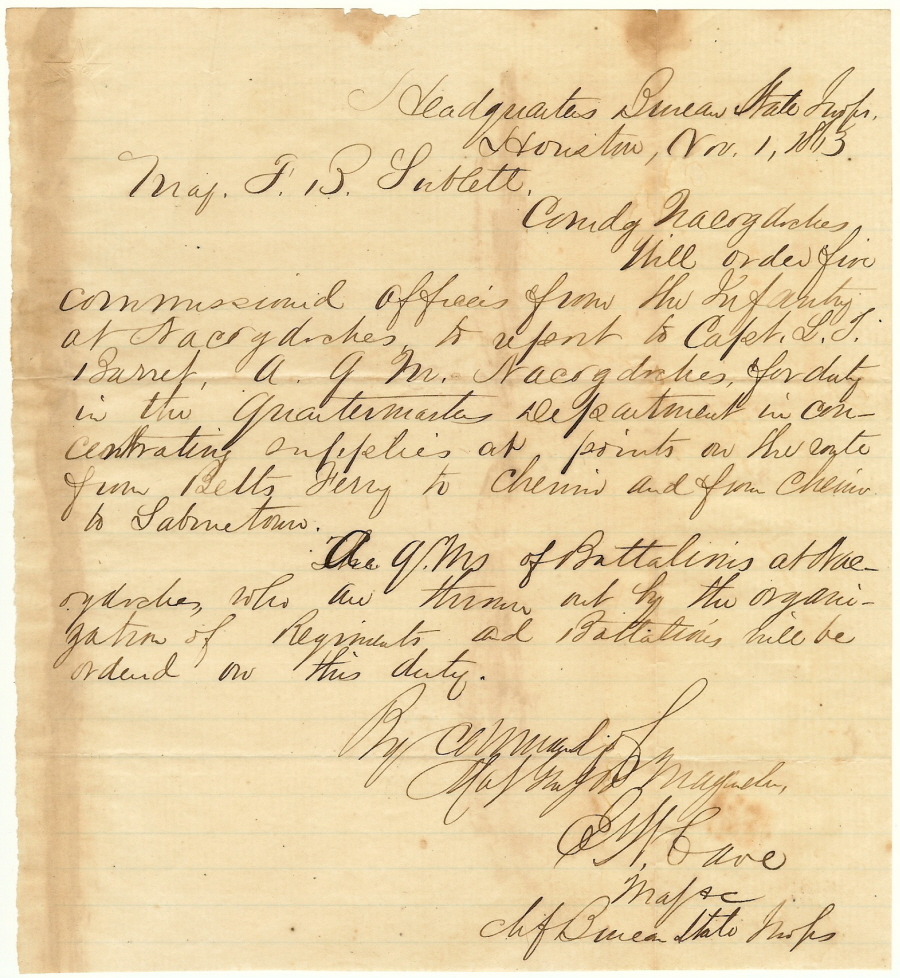 Headquarters Bureau State Troops.
Houston, Nov. 1, 1863.
Maj. F. B. Sublett,
Comdg Nacogdoches
Will order five
commissioned officers from the Infantry
at Nacogdoches, to report to Capt. L. T.
Barret, A. Q M. Nacogdoches, for duty
in the Quartermasters Department in con-
centrating supplies at points on the route
from Belts Ferry to Chenio and from Chenio
to Sabinetown.
The A. Q. Ms of Battalions at Nac-
ogdoches, who are thrown out by the organi-
zation of Regiments and Battalions will be
ordered on this duty.
By command of
Maj Magruder,
E. W. Cave
Maj &c
Chf Bureau State Troops